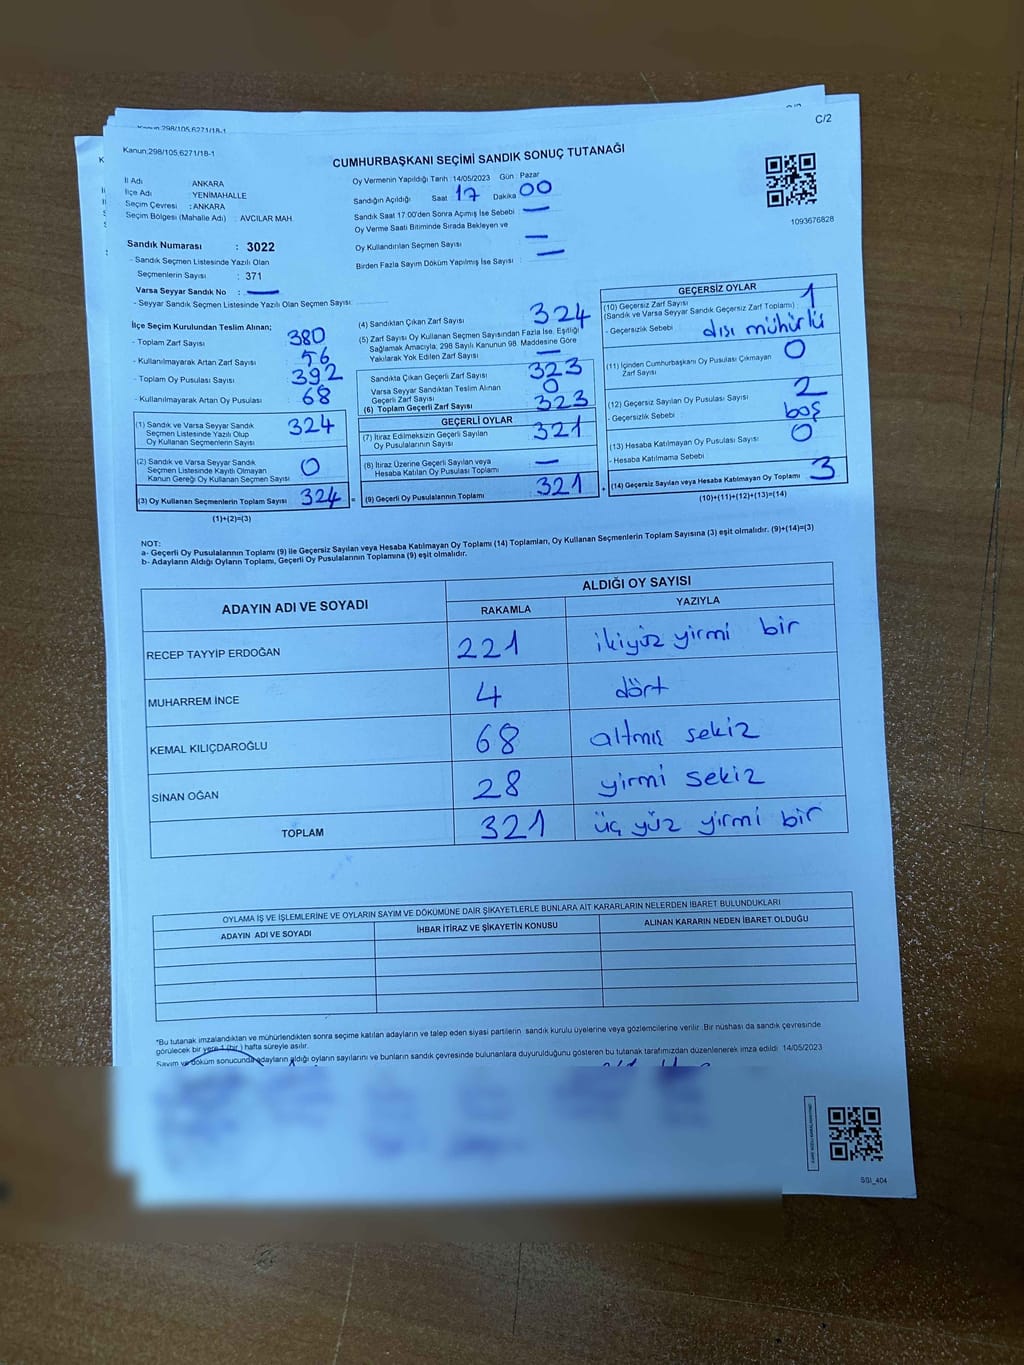 Kanun.298/105,6271/18-1
C/2
Kanun.298/105,6271/18-1
CUMHURBAŞKANI SEÇİMİ SANDIK SONUÇ TUTANAĞI
İl Adı : ANKARA
İlçe Adı : YENİMAHALLE
Seçim Çevresi : ANKARA
Seçim Bölgesi (Mahalle Adı) : AVCILAR MAH.
Oy Vermenin Yapıldığı Tarih 14/05/2023 Gün : Pazar
Sandığın Açıldığı Saat 17 Dakika 00
Sandık Saat 17:00'den Sonra Açımış İse Sebebi : —
Oy Verme Saati Bitiminde Sırada Bekleyen ve
Oy Kullandırılan Seçmen Sayısı —
Birden Fazla Sayım Döküm Yapılmış İse Sayısı : —
1093676828
Sandık Numarası : 3022
- Sandık Seçmen Listesinde Yazılı Olan
Seçmenlerin Sayısı : 371
Varsa Seyyar Sandık No : —
- Seyyar Sandık Seçmen Listesinde Yazılı Olan Seçmen Sayısı:
İlçe Seçim Kurulundan Teslim Alınan;
- Toplam Zarf Sayısı : 380
- Kullanılmayarak Artan Zarf Sayısı : 56
- Toplam Oy Pusulası Sayısı : 392
- Kullanılmayarak Artan Oy Pusulası : 68
(1) Sandık ve Varsa Seyyar Sandık
Seçmen Listesinde Yazılı Olup
Oy Kullanan Seçmenlerin Sayısı 324
(2) Sandık ve Varsa Seyyar Sandık
Seçmen Listesinde Kayıtlı Olmayan
Kanun Gereği Oy Kullanan Seçmen Sayısı 0
(3) Oy Kullanan Seçmenlerin Toplam Sayısı 324 =
(1)+(2)=(3)
(4) Sandıktan Çıkan Zarf Sayısı 324
(5) Zarf Sayısı Oy Kullanan Seçmen Sayısından Fazla İse, Eşitliği
Sağlamak Amacıyla; 298 Sayılı Kanunun 98. Maddesine Göre
Yakılarak Yok Edilen Zarf Sayısı —
Sandıkta Çıkan Geçerli Zarf Sayısı 323
Varsa Seyyar Sandıktan Teslim Alınan
Geçerli Zarf Sayısı 0
(6) Toplam Geçerli Zarf Sayısı 323
GEÇERLİ OYLAR
(7) İtiraz Edilmeksizin Geçerli Sayılan
Oy Pusulalarının Sayısı 321
(8) İtiraz Üzerine Geçerli Sayılan veya
Hesaba Katılan Oy Pusulası Toplamı —
(9) Geçerli Oy Pusulalarının Toplamı 321 +
GEÇERSİZ OYLAR
(10) Geçersiz Zarf Sayısı
(Sandık ve Varsa Seyyar Sandık Geçersiz Zarf Toplamı) 1
- Geçersizlik Sebebi dışı mühürlü
(11) İçinden Cumhurbaşkanı Oy Pusulası Çıkmayan
Zarf Sayısı 0
(12) Geçersiz Sayılan Oy Pusulası Sayısı 2
- Geçersizlik Sebebi : boş
(13) Hesaba Katılmayan Oy Pusulası Sayısı 0
- Hesaba Katılmama Sebebi
(14) Geçersiz Sayılan veya Hesaba Katılmayan Oy Toplamı 3
(10)+(11)+(12)+(13)=(14)
NOT:
a- Geçerli Oy Pusulalarının Toplamı (9) ile Geçersiz Sayılan veya Hesaba Katılmayan Oy Toplamı (14) Toplamları, Oy Kullanan Seçmenlerin Toplam Sayısına (3) eşit olmalıdır. (9)+(14)=(3)
b- Adayların Aldığı Oyların Toplamı, Geçerli Oy Pusulalarının Toplamına (9) eşit olmalıdır.
ADAYIN ADI VE SOYADI ALDIĞI OY SAYISI
RAKAMLA YAZIYLA
RECEP TAYYİP ERDOĞAN 221 ikiyüz yirmi bir
MUHARREM İNCE 4 dört
KEMAL KILIÇDAROĞLU 68 altmış sekiz
SİNAN OĞAN 28 yirmi sekiz
TOPLAM 321 üç yüz yirmi bir
OYLAMA İŞ VE İŞLEMLERİNE VE OYLARIN SAYIM VE DÖKÜMÜNE DAİR ŞİKAYETLERLE BUNLARA AİT KARARLARIN NELERDEN İBARET BULUNDUKLARI
ADAYIN ADI VE SOYADI İHBAR İTİRAZ VE ŞİKAYETİN KONUSU ALINAN KARARIN NEDEN İBARET OLDUĞU
*Bu tutanak imzalandıktan ve mühürlendikten sonra seçime katılan adayların ve talep eden siyasi partilerin sandık kurulu üyelerine veya gözlemcilerine verilir. Bir nüshası da sandık çevresinde
görülecek bir yere 1 (bir) hafta süreyle asılır.
Sayım ve döküm sonucunda adayların aldığı oyların sayılarını ve bunların sandık çevresinde bulunanlara duyurulduğunu gösteren bu tutanak tarafımızdan düzenlenerek imza edildi. 14/05/2023
SSI_404